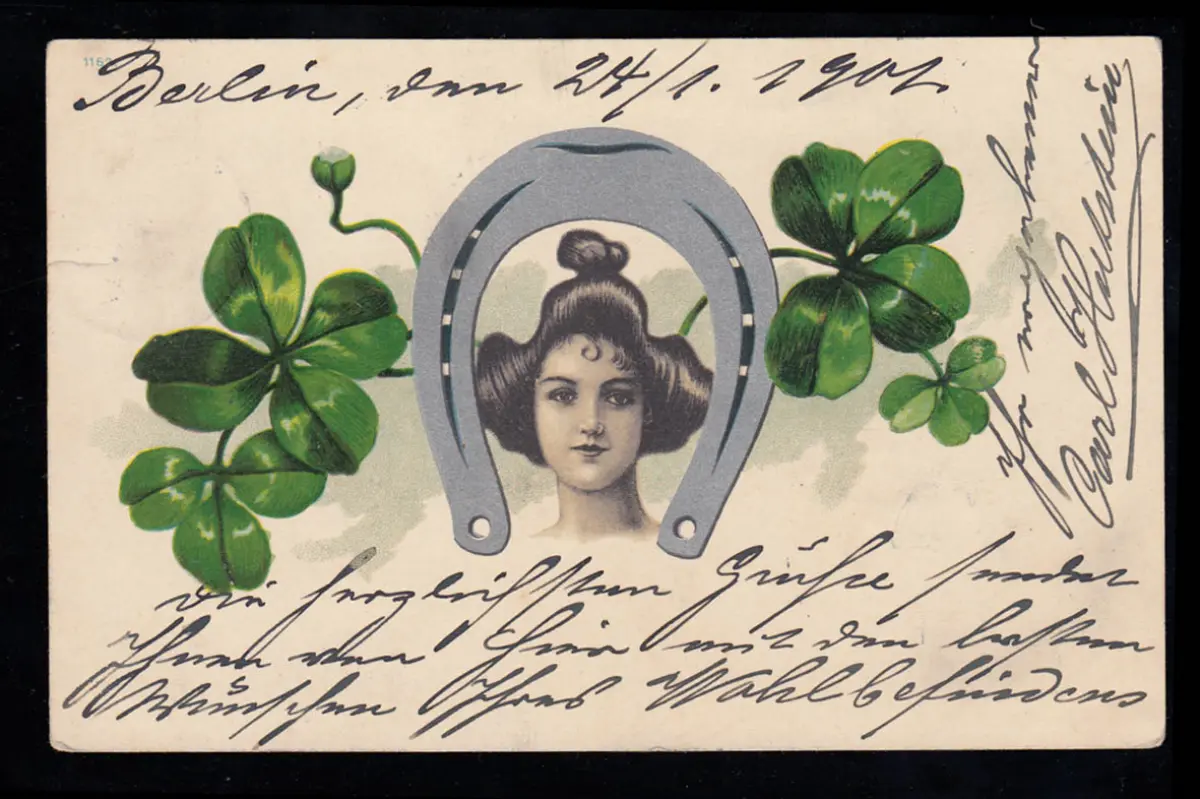 116
Berlin, den 24/1. 1901.
Die herzlichsten Grüße sendet
Ihnen von hier mit den besten
Wünschen Ihres Wohlbefindens
Ihr
Carl